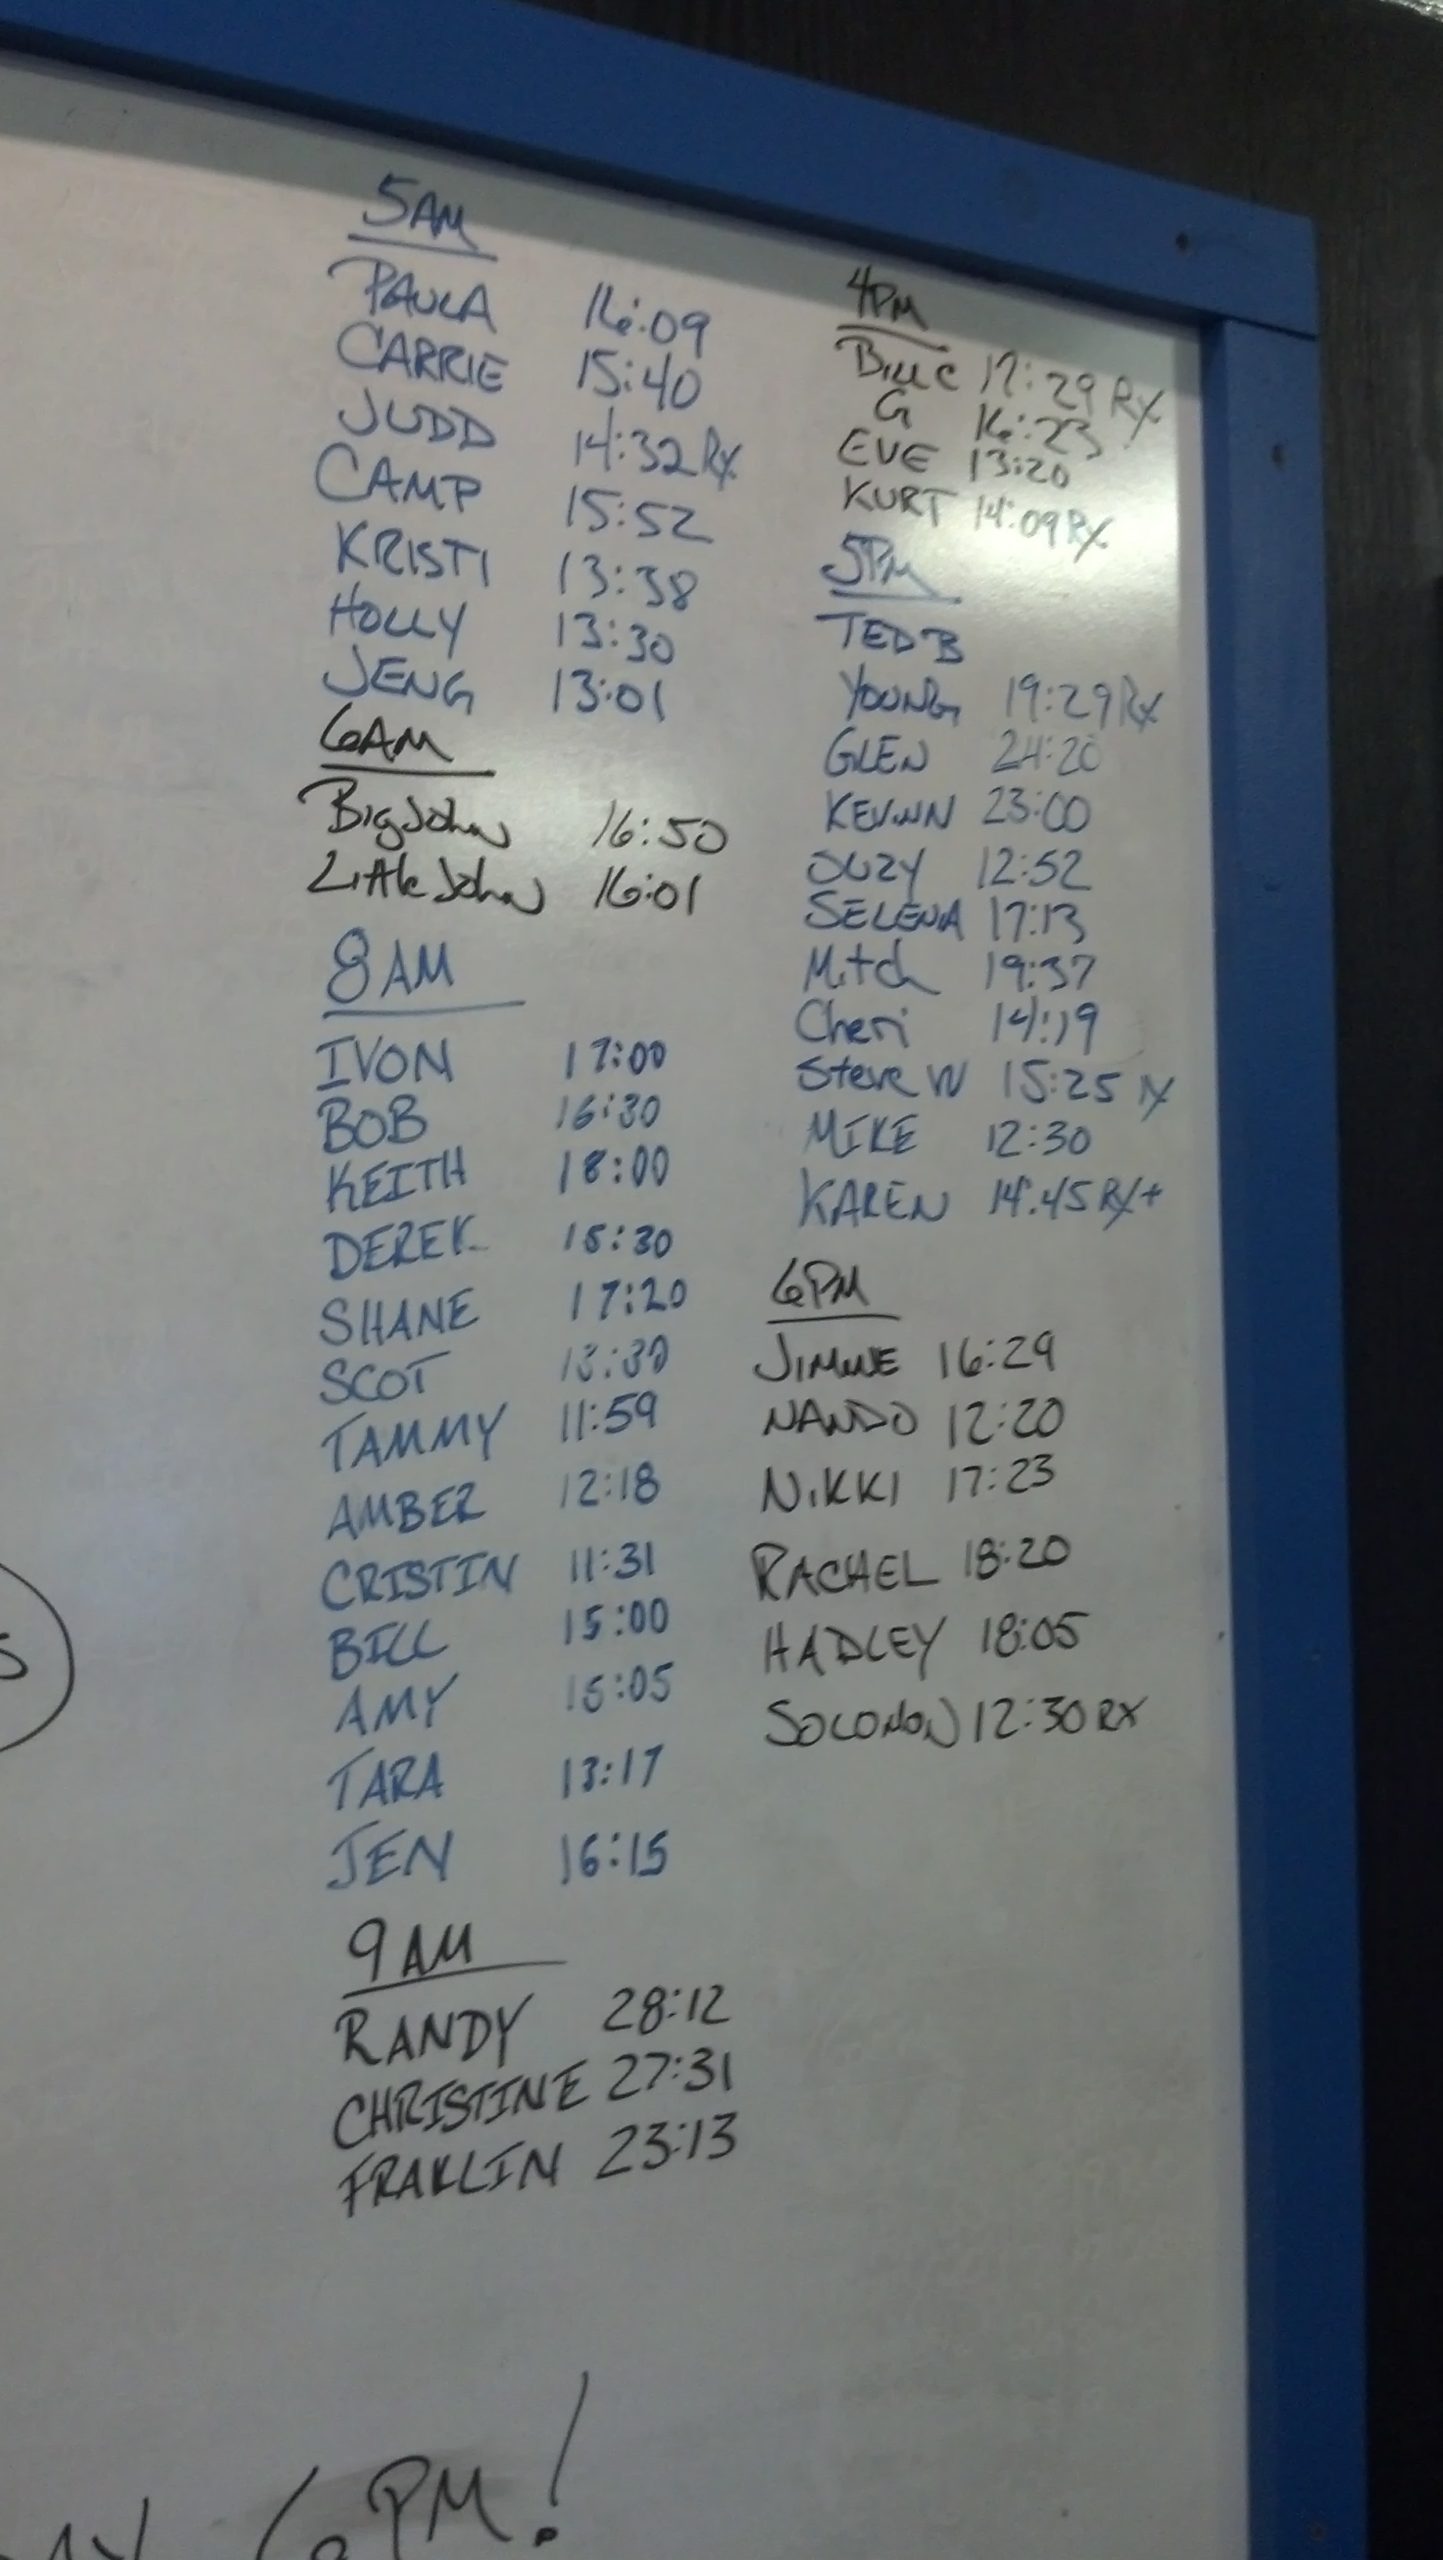 5AM
PAULA 16:09
CARRIE 15:40
JUDD 14:32 RX
CAMP 15:52
KRISTI 13:38
HOLLY 13:30
JENG 13:01
6AM
BigJohn 16:50
LittleJohn 16:01
8AM
IVON 17:00
BOB 16:30
KEITH 18:00
DEREK
SHANE 17:20
SCOT
TAMMY 11:59
AMBER 12:18
CRISTIN 11:31
BILL 15:00
AMY
TARA 13:17
JEN 16:15
9AM
RANDY 28:12
CHRISTINE 27:31
FRAKLIN 23:13
4PM
BILL C 17:29 RX
G 16:23
EVE 13:20
KURT 14:09 RX
5PM
TED B
YOUNG 19:29 RX
GLEN 24:20
23:00
12:52
SELENA 17:13
Mitch 19:37
Cheri 14:19
Steve W 15:25 rx
MIKE 12:30
KAREN 14:45 RX+
6PM
JIMMIE 16:29
NANDO 12:20
NIKKI 17:23
RACHEL 18:20
HADLEY 18:05
SOLOMON 12:30 RX
6PM!